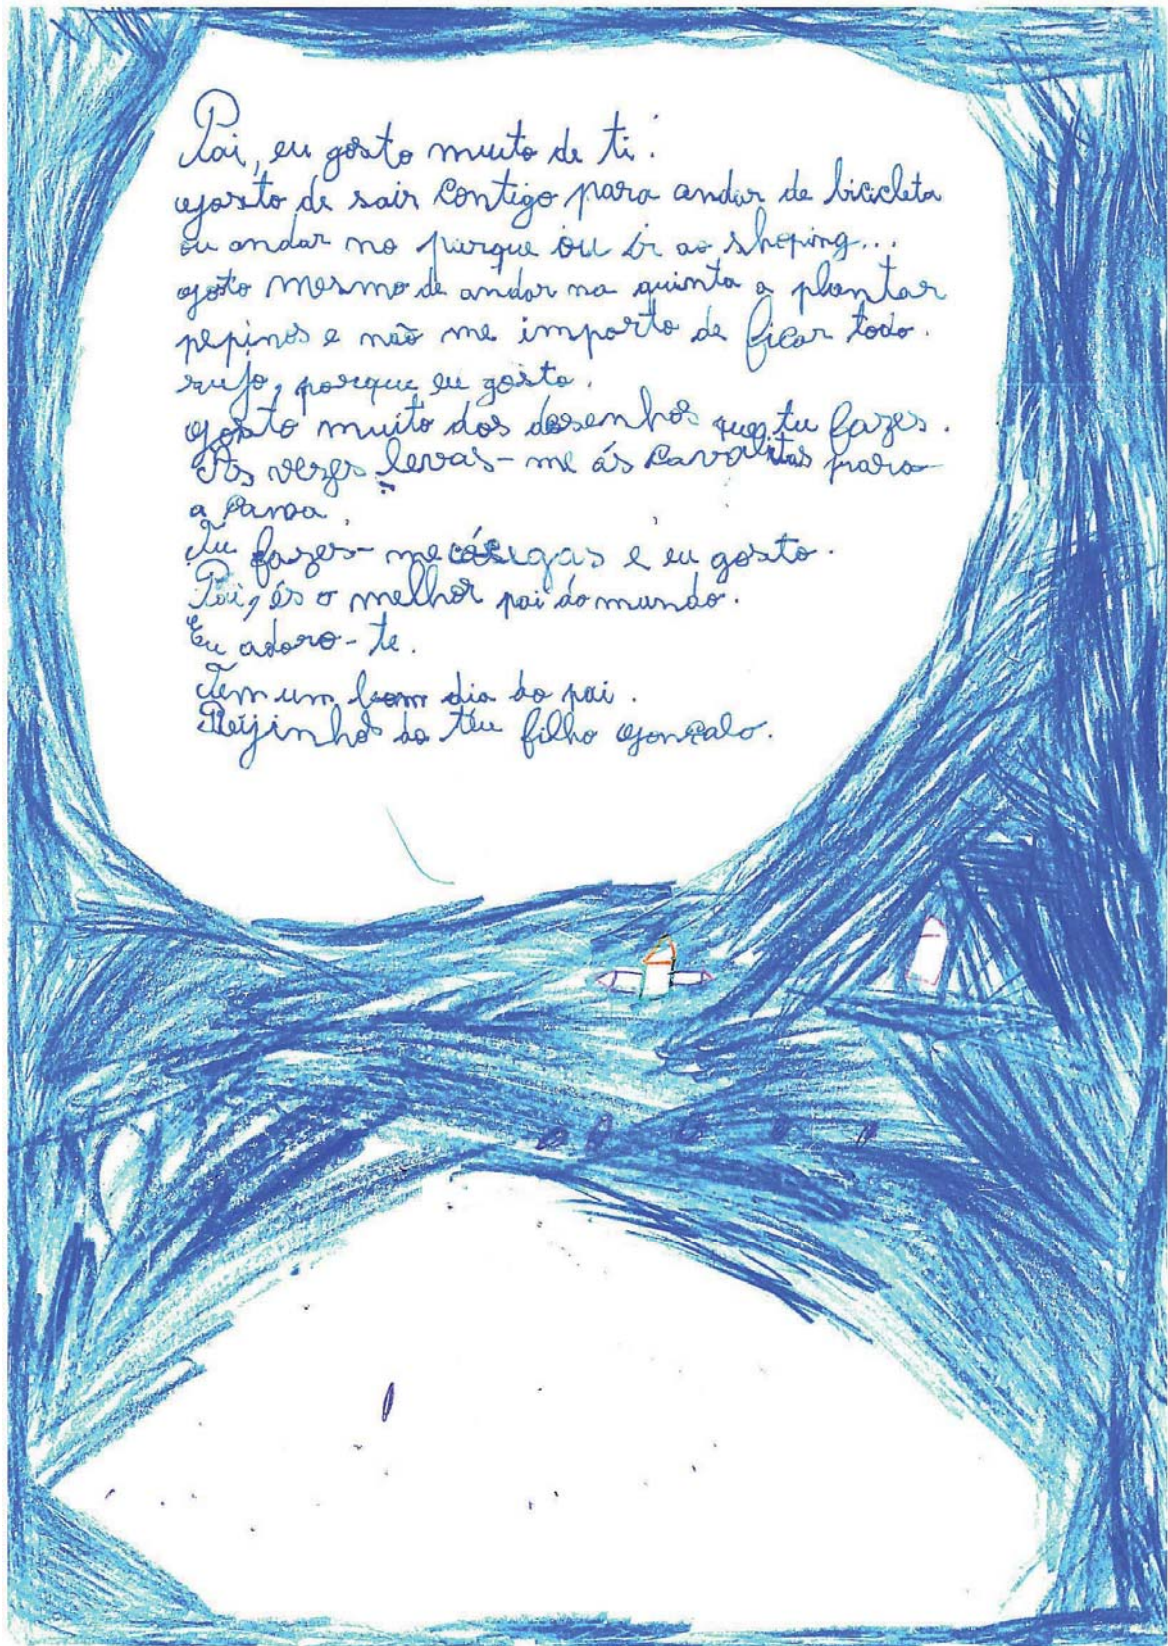 Pai, eu gosto muito de ti.
Gosto de sair contigo para andar de bicicleta
ou andar no parque ou ir ao shoping...
gosto mesmo de andar na quinta a plantar
pepinos e não me importo de ficar todo.
sujo, porque eu gosto.
Gosto muito dos desenhos que tu fazes.
Às vezes levas-me ás cavalitas para
a cama.
Tu fazes-me cócegas e eu gosto.
Pai, és o melhor pai do mundo.
Eu adoro-te.
Tem um bom dia do pai.
Beijinhos do teu filho Gonçalo.